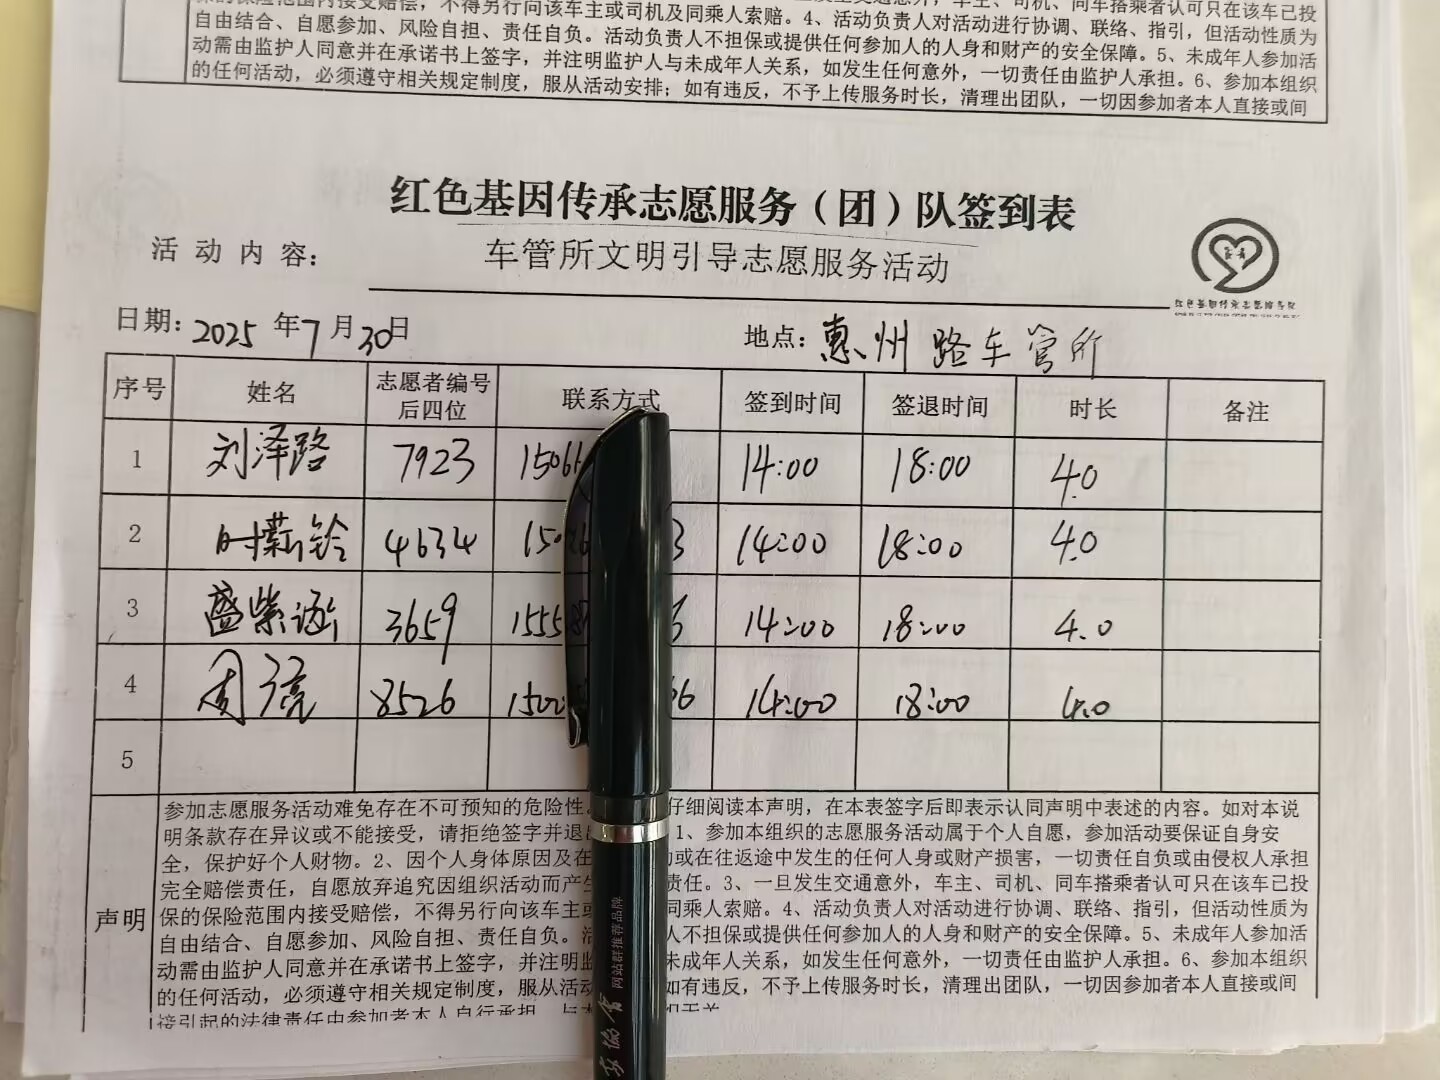 自由结合、自愿参加、风险自担、责任自负。活动负责人不担保或提供任何参加人的人身和财产的安全保障。5、未成年人参加活
动需由监护人同意并在承诺书上签字，并注明监护人与未成年人关系，如发生任何意外，一切责任由监护人承担。6、参加本组织
的任何活动，必须遵守相关规定制度，服从活动安排；如有违反，不予上传服务时长，清理出团队，一切因参加者本人直接或间
红色基因传承志愿服务（团）队签到表
活动内容： 车管所文明引导志愿服务活动
日期：2025年7月30日 地点：惠州路车管所
序号 姓名 志愿者编号后四位 联系方式 签到时间 签退时间 时长 备注
1 刘泽路 7923 1506 14:00 18:00 4.0
2 时薪铃 4634 150 3 14:00 18:00 4.0
3 盛紫涵 3659 1555 14:00 18:00 4.0
4 周 8526 150 66 14:00 18:00 4.0
5
声明
参加志愿服务活动难免存在不可预知的危险性。 仔细阅读本声明，在本表签字后即表示认同声明中表述的内容。如对本说
明条款存在异议或不能接受，请拒绝签字并退 1、参加本组织的志愿服务活动属于个人自愿，参加活动要保证自身安
全，保护好个人财物。2、因个人身体原因及在 动或在往返途中发生的任何人身或财产损害，一切责任自负或由侵权人承担
完全赔偿责任，自愿放弃追究因组织活动而产生 责任。3、一旦发生交通意外，车主、司机、同车搭乘者认可只在该车已投
保的保险范围内接受赔偿，不得另行向该车主或 同乘人索赔。4、活动负责人对活动进行协调、联络、指引，但活动性质为
自由结合、自愿参加、风险自担、责任自负。 人不担保或提供任何参加人的人身和财产的安全保障。5、未成年人参加活
动需由监护人同意并在承诺书上签字，并注明 未成年人关系，如发生任何意外，一切责任由监护人承担。6、参加本组织
的任何活动，必须遵守相关规定制度，服从活动 如有违反，不予上传服务时长，清理出团队，一切因参加者本人直接或间
接引起的法律责任由参加者本人自行承担
网站群推荐品牌